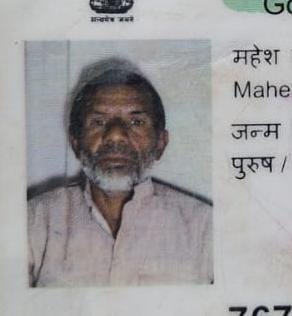 Go
सत्यमेव जयते
महेश
Mahe
जन्म
पुरुष /
767